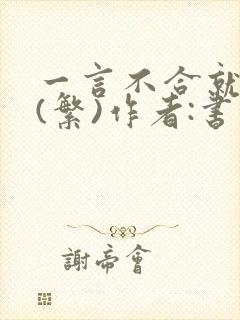 一言不合就
(繁)作者:書
謝帝會